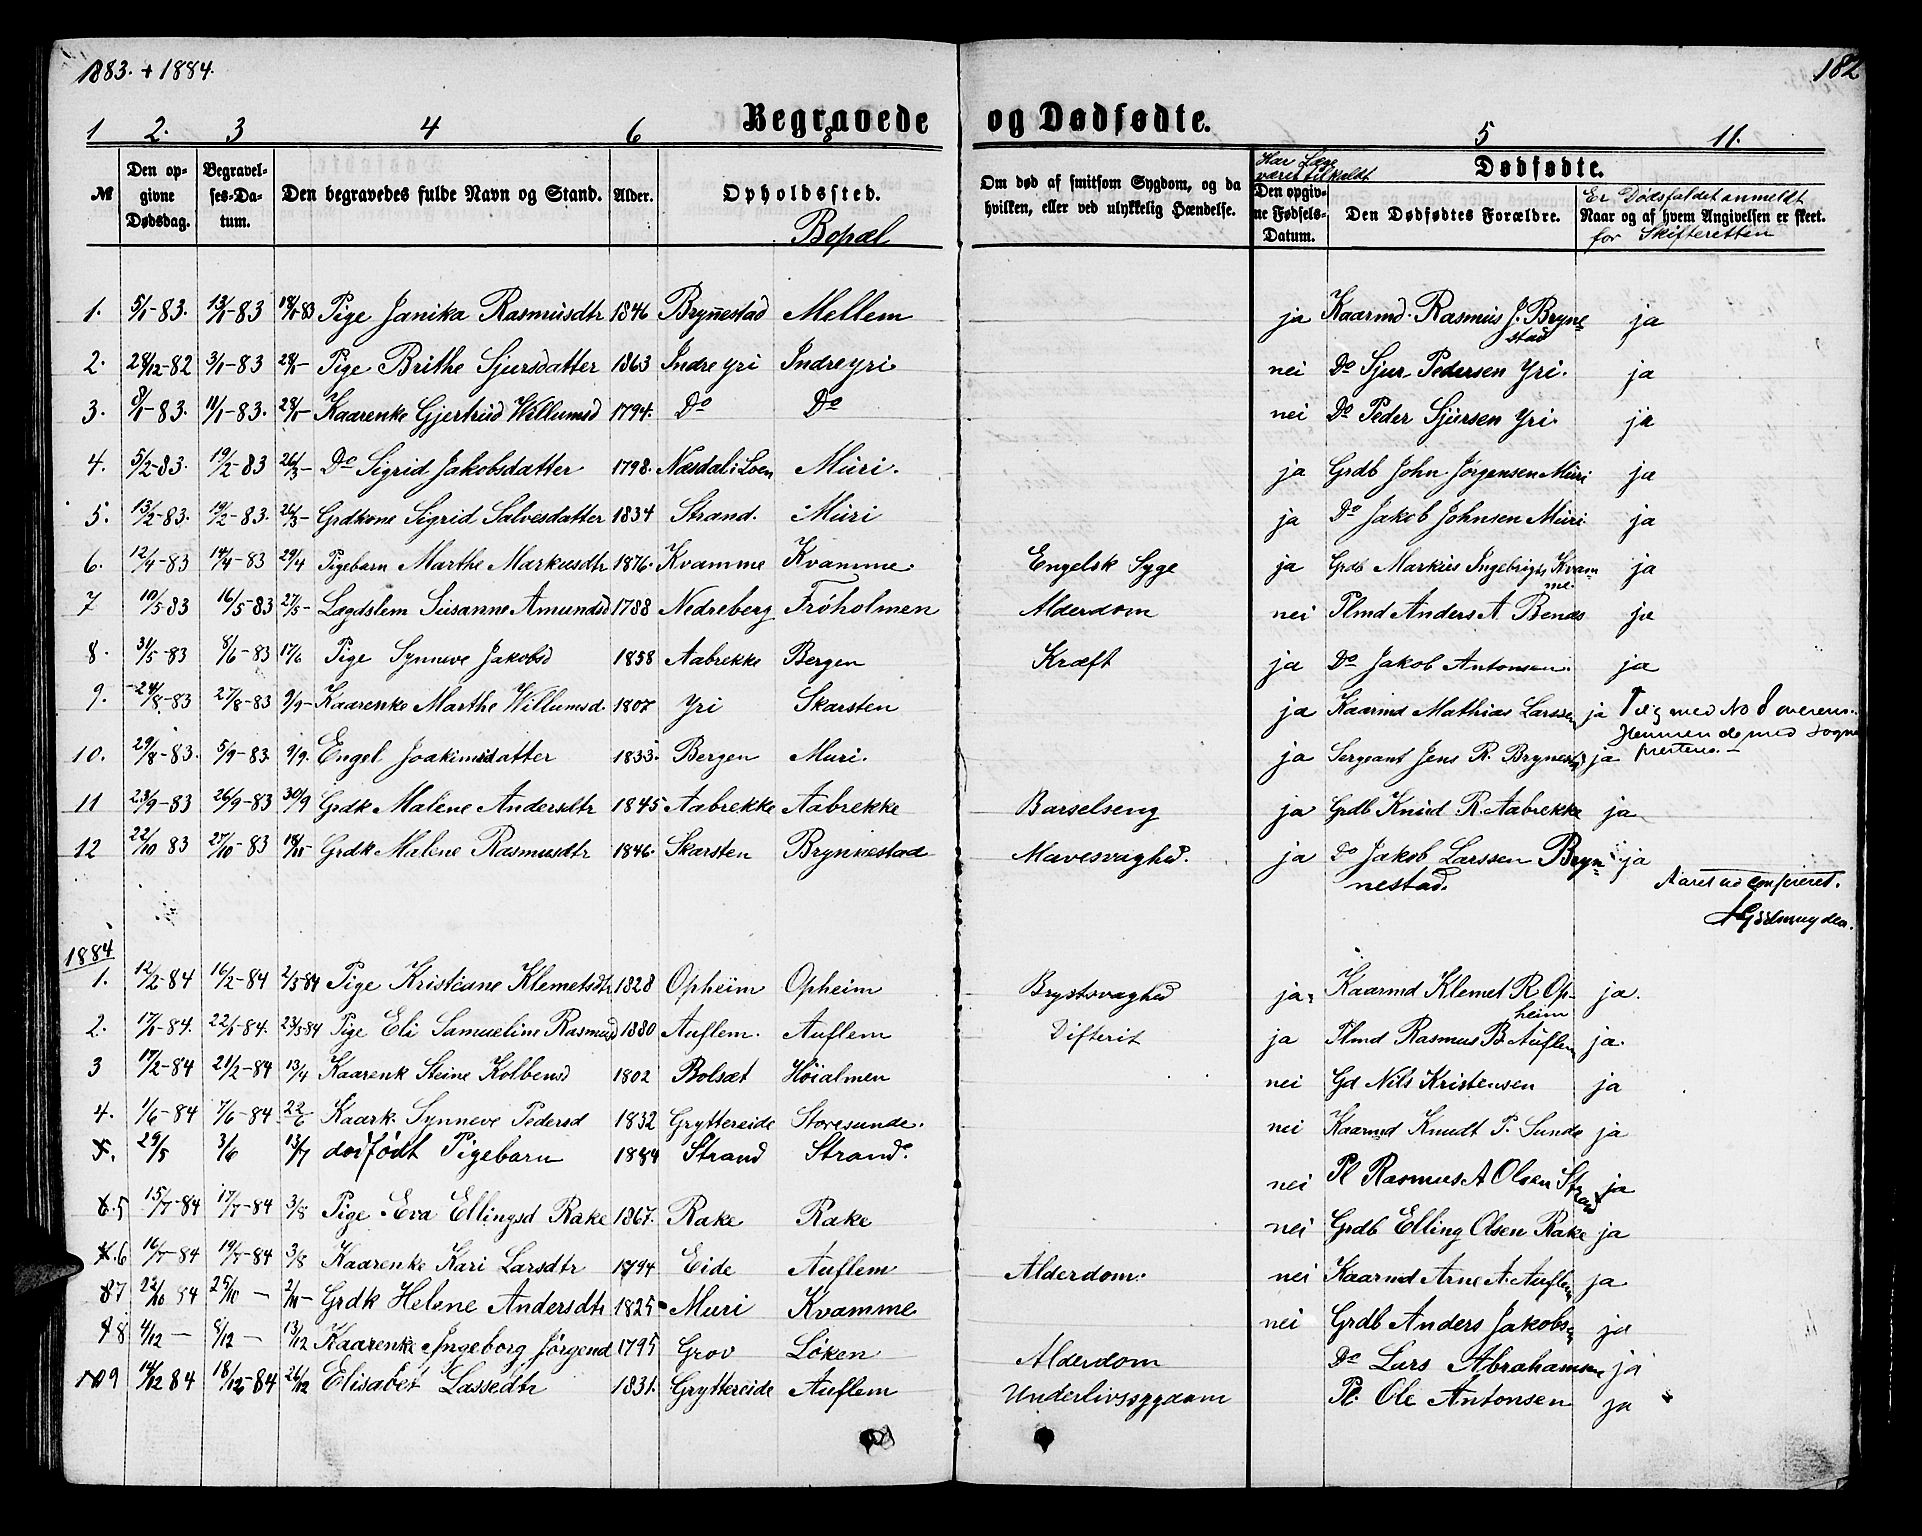 1883. + 1884.
182
Begravede og Dødfødte.
1 2. 3 4 6 8 5 11.
№ Den opgivne Dødsdag. Begravelses-Datum. Den begravedes fulde Navn og Stand. Alder. Opholdssted. Bopæl Om død af smitsom Sygdom, og da hvilken, eller ved ulykkelig Hændelse. Har Læge været tilkaldt Den opgivne Fødsels-Datum. Dødfødte. Den Dødfødtes Forældre. Er Dødsfaldet anmeldt Naar og af hvem Angivelsen er skeet. for Skifteretten
1. 5/1-83. 13/1-83 18/1-83 Pige Janika Rasmusdtr 1846 Brynestad Mellem ja Kaarmd. Rasmus J. Brynestad ja
2. 28/12-82 3/1-83 28/1- Pige Brithe Sjursdatter 1863 Indre yri Indre yri nei Do Sjur Pedersen Yri. ja
3. 8/1-83. 11/1-83. 28/1- Kaarenke Gjertrud Willumsd 1794. Do Do nei Do Peder Sjursen Yri. ja
4. 5/2-83. 19/2-83 26/3- Do Sigrid Jakobsdatter 1798. Næsdal i Loen Muri. ja Grdb John Jørgensen Muri ja
5. 13/2-83. 19/2-83. 26/3- Grdkone Sigrid Salvesdatter 1834 Strand. Muri ja Do Jakob Johnsen Muri ja
6. 12/4-83 14/4-83 29/4 Pigebarn Marthe Markusdtr 1876. Kvamme Kvamme. Engelsk Syge ja Grdb Markus Ingebrigts Kvamme ja
7 10/5 83 16/5-83 27/5- Lægdslem Susanne Amundsd 1788 Nedreberg Frøholmen Alderdom nei Plmd Anders A. Bends ja
8. 31/5-83 8/6-83 17/6 Pige Synneve Jakobsd 1858 Aabrekke Bergen Kræft ja Do Jakob Antonsen. ja
9. 24/8-83 27/8-83 9/9- Kaarenke Marthe Willumsd. 1807 Yri Skarsten ja Kaarmd Mathias Larssen ja Til og med No 8 overensstemmende med Sogneprestens.-
10. 29/8-83. 5/9-83. 9/9. Engel Joakimsdatter 1833. Bergen Muri. ja Sergeant Jens R. Brynest ja
11 23/9-83 26/9-83 30/9 Grdk Malene Andersdtr 1845 Aabrekke Aabrekke Barselseng ja Grdb Knud R. Aabrekke ja
12 22/10 83 27/10-83 18/11 Grdk Malene Rasmusdtr 1846. Skarsten Brynnestad Mavesvaghed. ja Do Jakob Larssen Brynnestad. ja
1884
1. 12/2-84 16/2-84 2/3-84 Pige Kristiane Klemetsdtr 1828 Opheim Opheim Brystsvaghed ja. Kaarmd Klemet R. Opheim ja.
2. 17/1-84. 22/1-84. 23/3-84 Pige Eli Samueline Rasmusd 1880 Auflem. Auflem Difterit ja Plmd Rasmus B. Auflem ja.
3 17/2-84 21/2-84 13/4 Kaarenk Steine Kolbensd 1802 Bolsæt Høialmen nei Gd Nils Kristensen ja
4. 1/6-84 7/6-84 22/6 Kaark. Synneve Pedersd 1832 Gryttereide Storesunde. nei Kaarmd Knudt P. Sunde ja
5. 29/5 3/6 13/7 dødfødt Pigebarn 1884 Strand Strand. nei Pl Rasmus A Olsen Strand ja
6.5 15/7-84 17/7-84 3/8 Pige Eva Ellingsd Rake 1867. Rake Rake nei Grdb Elling Olsen Rake ja
7.6 16/7-84 19/7-84 3/8 Kaarenke Kari Larsdtr 1794 Eide Auflem Alderdom. nei Kaarmd Arne A. Auflem ja
87 22/10 84 25/10 - 2/11- Grdk Helene Andersdtr 1825 Muri Kvamme nei Grdb Anders Jakobs ja
98 4/12 - 8/12 - 13/12 Kaarenke Ingeborg Jørgend 1795 Grov Løken Alderdom Do Lars Abrahamsen ja
109 14/12 84 18/12-84 26/12 Elisabet Lassedtr 1831. Gryttereide Auflem Underlivssygdom Pl. Ole Antonsen ja